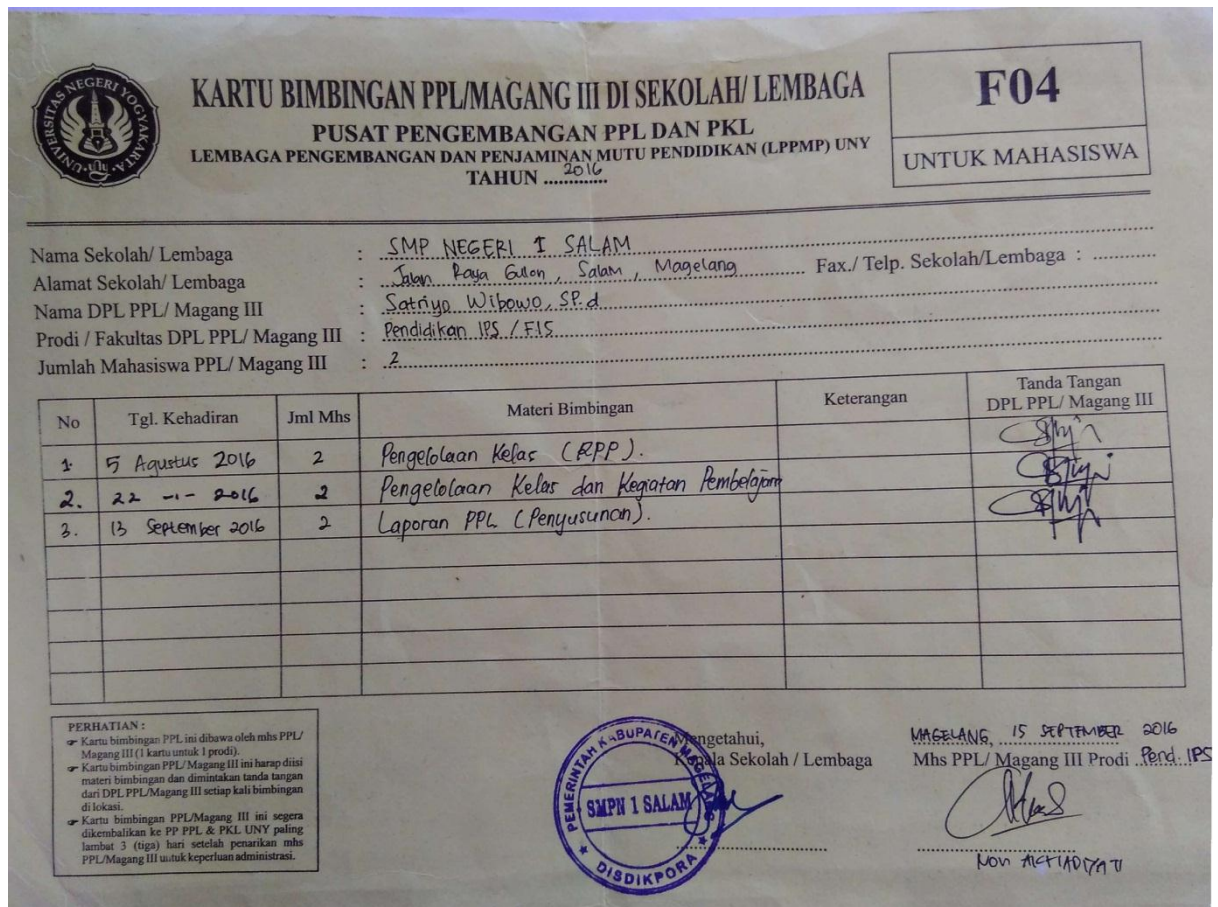 UNIVERSITAS NEGERI YOGYAKARTA
UNY
KARTU BIMBINGAN PPL/MAGANG III DI SEKOLAH/ LEMBAGA
PUSAT PENGEMBANGAN PPL DAN PKL
LEMBAGA PENGEMBANGAN DAN PENJAMINAN MUTU PENDIDIKAN (LPPMP) UNY
TAHUN 2016
F04
UNTUK MAHASISWA
Nama Sekolah/ Lembaga : SMP NEGERI 1 SALAM
Alamat Sekolah/ Lembaga : Jalan Raya Gulon, Salam, Magelang Fax./ Telp. Sekolah/Lembaga : ............
Nama DPL PPL/ Magang III : Satriyo Wibowo, SP.d
Prodi / Fakultas DPL PPL/ Magang III : Pendidikan IPS / FIS
Jumlah Mahasiswa PPL/ Magang III : 2
No Tgl. Kehadiran Jml Mhs Materi Bimbingan Keterangan Tanda Tangan DPL PPL/ Magang III
1. 5 Agustus 2016 2 Pengelolaan Kelas (RPP).
2. 22 -"- 2016 2 Pengelolaan Kelas dan Kegiatan Pembelajaran
3. 13 September 2016 2 Laporan PPL (Penyusunan).
PERHATIAN :
☞ Kartu bimbingan PPL ini dibawa oleh mhs PPL/
Magang III (1 kartu untuk 1 prodi).
☞ Kartu bimbingan PPL/Magang III ini harap diisi
materi bimbingan dan dimintakan tanda tangan
dari DPL PPL/Magang III setiap kali bimbingan
di lokasi.
☞ Kartu bimbingan PPL/Magang III ini segera
dikembalikan ke PP PPL & PKL UNY paling
lambat 3 (tiga) hari setelah penarikan mhs
PPL/Magang III untuk keperluan administrasi.
Mengetahui,
Kepala Sekolah / Lembaga
PEMERINTAH KABUPATEN MAGELANG
SMPN 1 SALAM
DISDIKPORA
MAGELANG, 15 SEPTEMBER 2016
Mhs PPL/ Magang III Prodi Pend. IPS